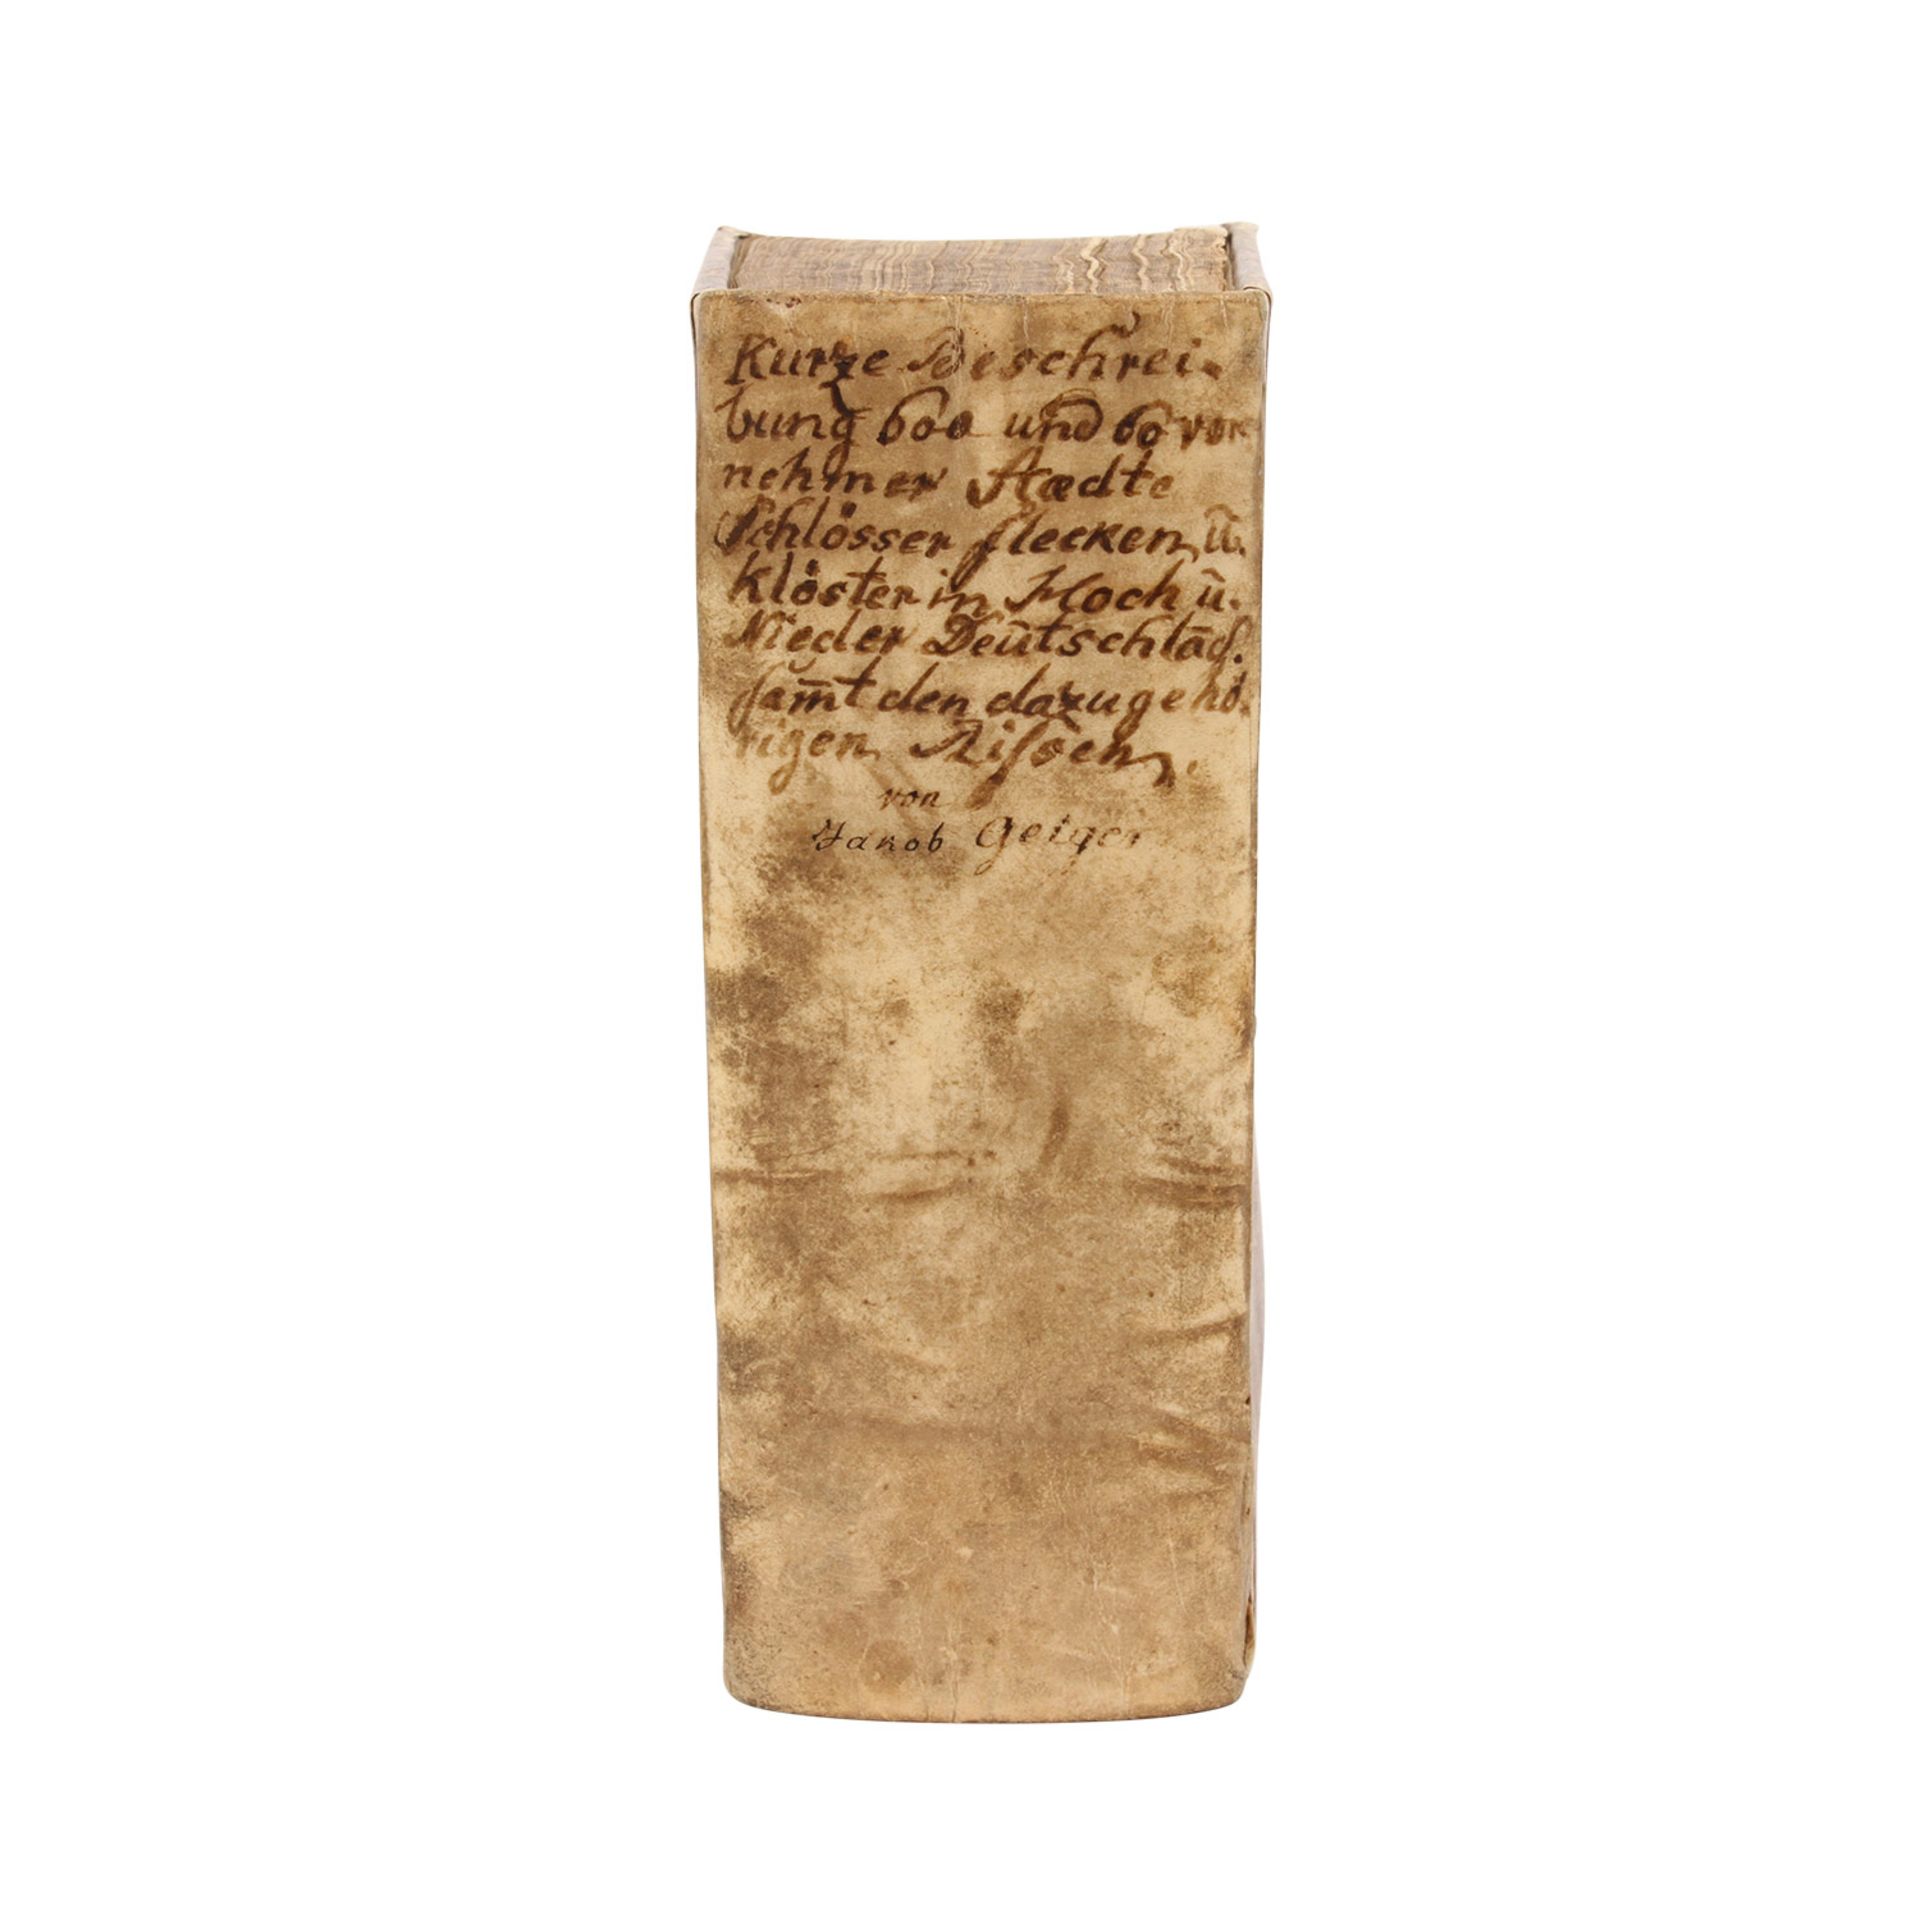 Kurze Beschrei-
bung 600 und 60 vor
nehmer Staedte
Schlösser flecken, ũ.
Klöster in Hoch ũ.
Nieder Deũtschlād.
sam̄t den dazugehö.
rigen Rissen.
von
Jakob Geiger